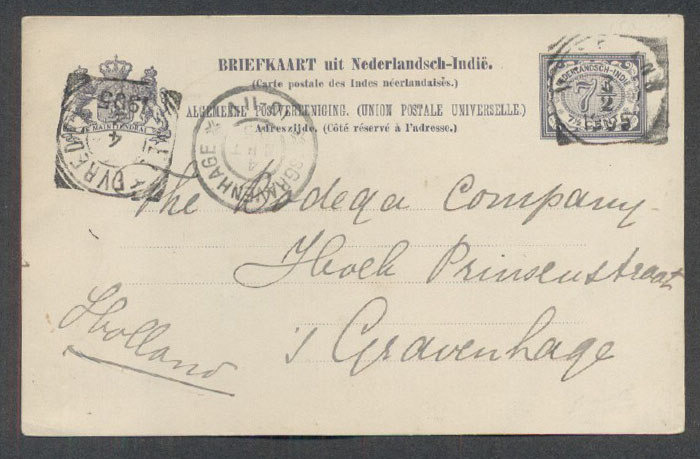 BRIEFKAART uit Nederlandsch-Indië.
(Carte postale des Indes néerlandaises.)
ALGEMEENE POSTVEREENIGING. (UNION POSTALE UNIVERSELLE.)
Adreszijde. (Côté réservé à l'adresse.)
JE MAINTIENDRAI
1905
'SGRAVENHAGE
NEDERLANDSCH-INDIË
7½
7½ CENT
The Bodega Company
Hoek Prinsenstraat
's Gravenhage
Holland